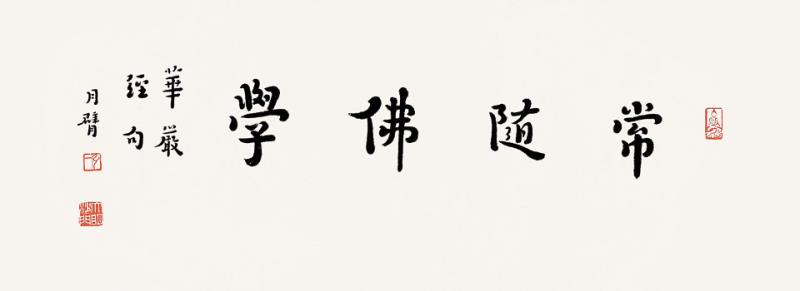 常隨佛學
華嚴
經句
月臂